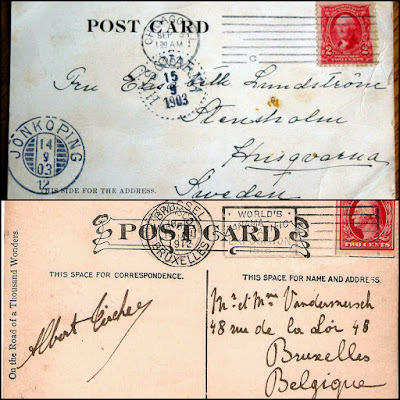 POST CARD
CHICAGO
SEP 3
1 30 AM
2 2
TWO CENTS
HUSQVARNA
15
9
1903
Fru Elenholm Lundström
Stensholm
Husqvarna
Sweden
JÖNKÖPING
14
9
03
12
THIS SIDE FOR THE ADDRESS.
BRUXELLES
1912
BRUSSEL
WORLD'S
POST CARD
TWO CENTS
THIS SPACE FOR CORRESPONDENCE.
THIS SPACE FOR NAME AND ADDRESS.
On the Road of a Thousand Wonders.
Albert
Mr et Mme Vandermersch
48 rue de la Loi 48
Bruxelles
Belgique